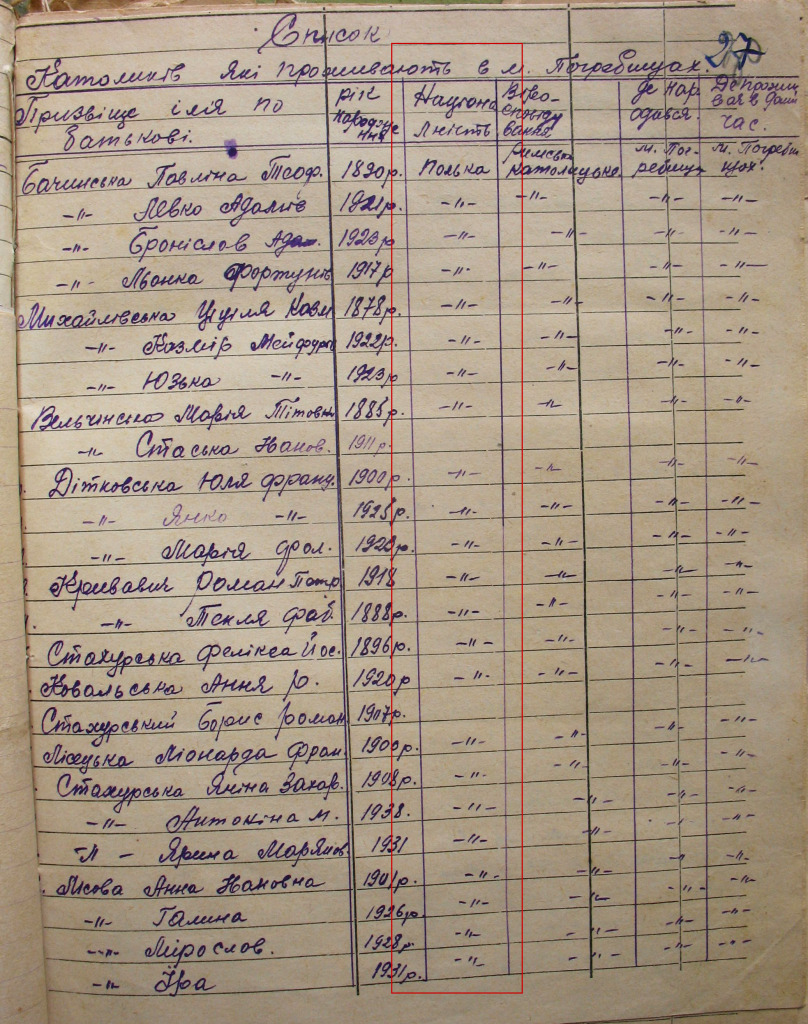 27
Список
Католиків які проживають в м. Погребищах.
Призвіще імя по батькові. рік народження Націона лність Віро- споведу вання де нар одився. До прожив ває в дан час.
Бачинська Павліна Теоф. 1890р. Полька Римсько католицьке м. Пог- ребищи м. Погреби щах.
-"- Левко Адамів 1921р. -"- -"- -"- -"-
-"- Броніслав Адам. 1923р -"- -"- -"- -"-
-"- Льонка Фортунів 1917р -"- -"- -"- -"-
Михайлівська Ціціля Казм 1878р. -"- -"- -"- -"-
-"- Казмір 1922р. -"- -"- -"- -"-
-"- Юзька -"- 1923р -"- -"- -"- -"-
Вельчінська Марія Тітовн 1885р. -"- -"- -"- -"-
-"- Стаська Іванов. 1911р.
Дітковська Юля Францу. 1900р. -"- -"- -"- -"-
-"- Янко -"- 1925р. -"- -"- -"- -"-
-"- Марія Фол. 1928р. -"- -"- -"- -"-
Кривавич Роман Петр 1918 -"- -"- -"- -"-
-"- Текля Фаб. 1888р. -"- -"- -"- -"-
Стахурська Фелікса Йос. 1896р. -"- -"- -"- -"-
Ковальська Ання р. 1920р -"- -"- -"- -"-
Стахурський Борис Роман 1907р.
Лісецька Ліонарда Фран. 1900р. -"- -"- -"- -"-
Стахурська Яніна Захар. 1908р. -"- -"- -"- -"-
-"- Антоніна М. 1938. -"- -"- -"- -"-
-"- Ярина Марянов. 1931 -"- -"- -"- -"-
Лісова Анна Івановна 1901р. -"- -"- -"- -"-
-"- Галина 1926р. -"- -"- -"- -"-
-"- Мірослов. 1928р. -"- -"- -"- -"-
-"- Їра 1931р. -"-